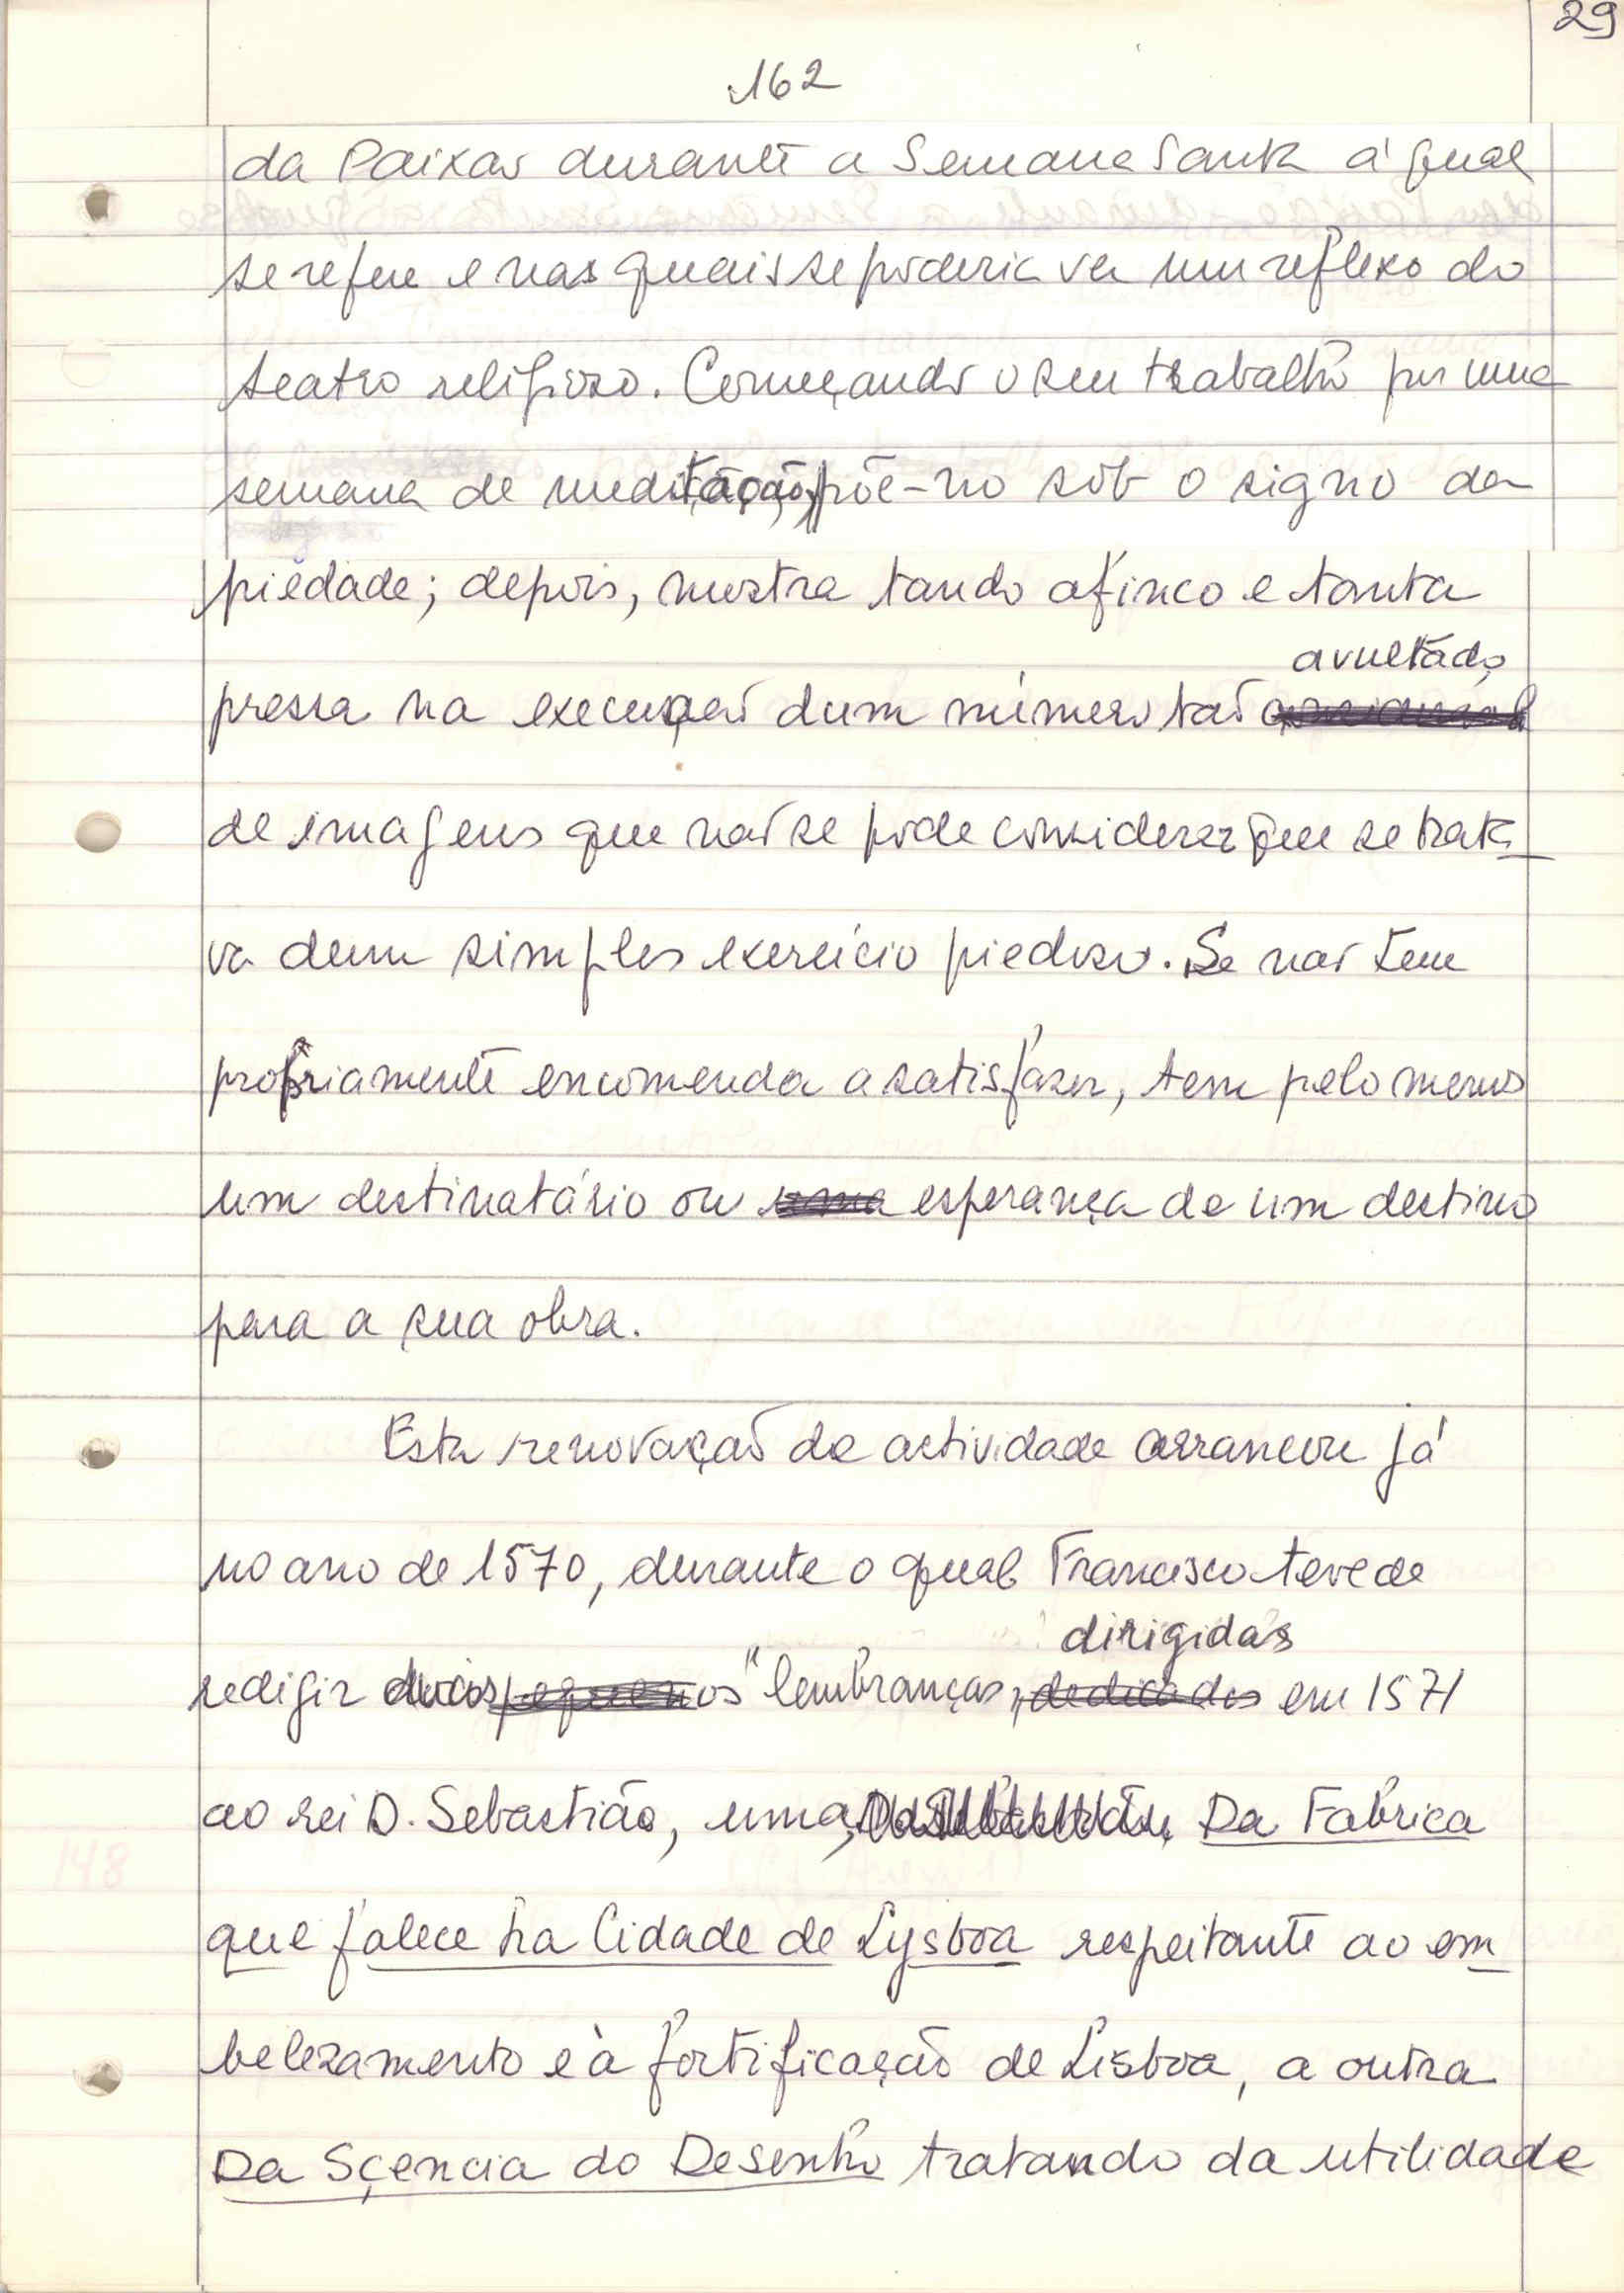 29
162
da Paixão durante a Semana Santa à qual
se refere e nas quais se poderia ver um reflexo do
teatro religioso. Começando o seu trabalho por uma
semana de meditação, põe-no sob o signo da
piedade; depois, mostra tando afinco e tanta
avultado
pressa na execução dum número tão
de imagens que não se pode considerar que se trata
va dum simples exercício piedoso. Se não tem
propriamente encomenda a satisfazer, tem pelo menos
um destinatário ou uma esperança de um destino
para a sua obra.
Esta renovação de actividade arrancou já
no ano de 1570, durante o qual Francisco teve de
dirigidas
redigir duas pequenos "lembranças, dedicados em 1571
ao rei D. Sebastião, uma, Da Fabrica
que falece ha Cidade de Lysboa respeitante ao em
belezamento e à fortificação de Lisboa, a outra
Da Sçencia do Desenho tratando da utilidade
148